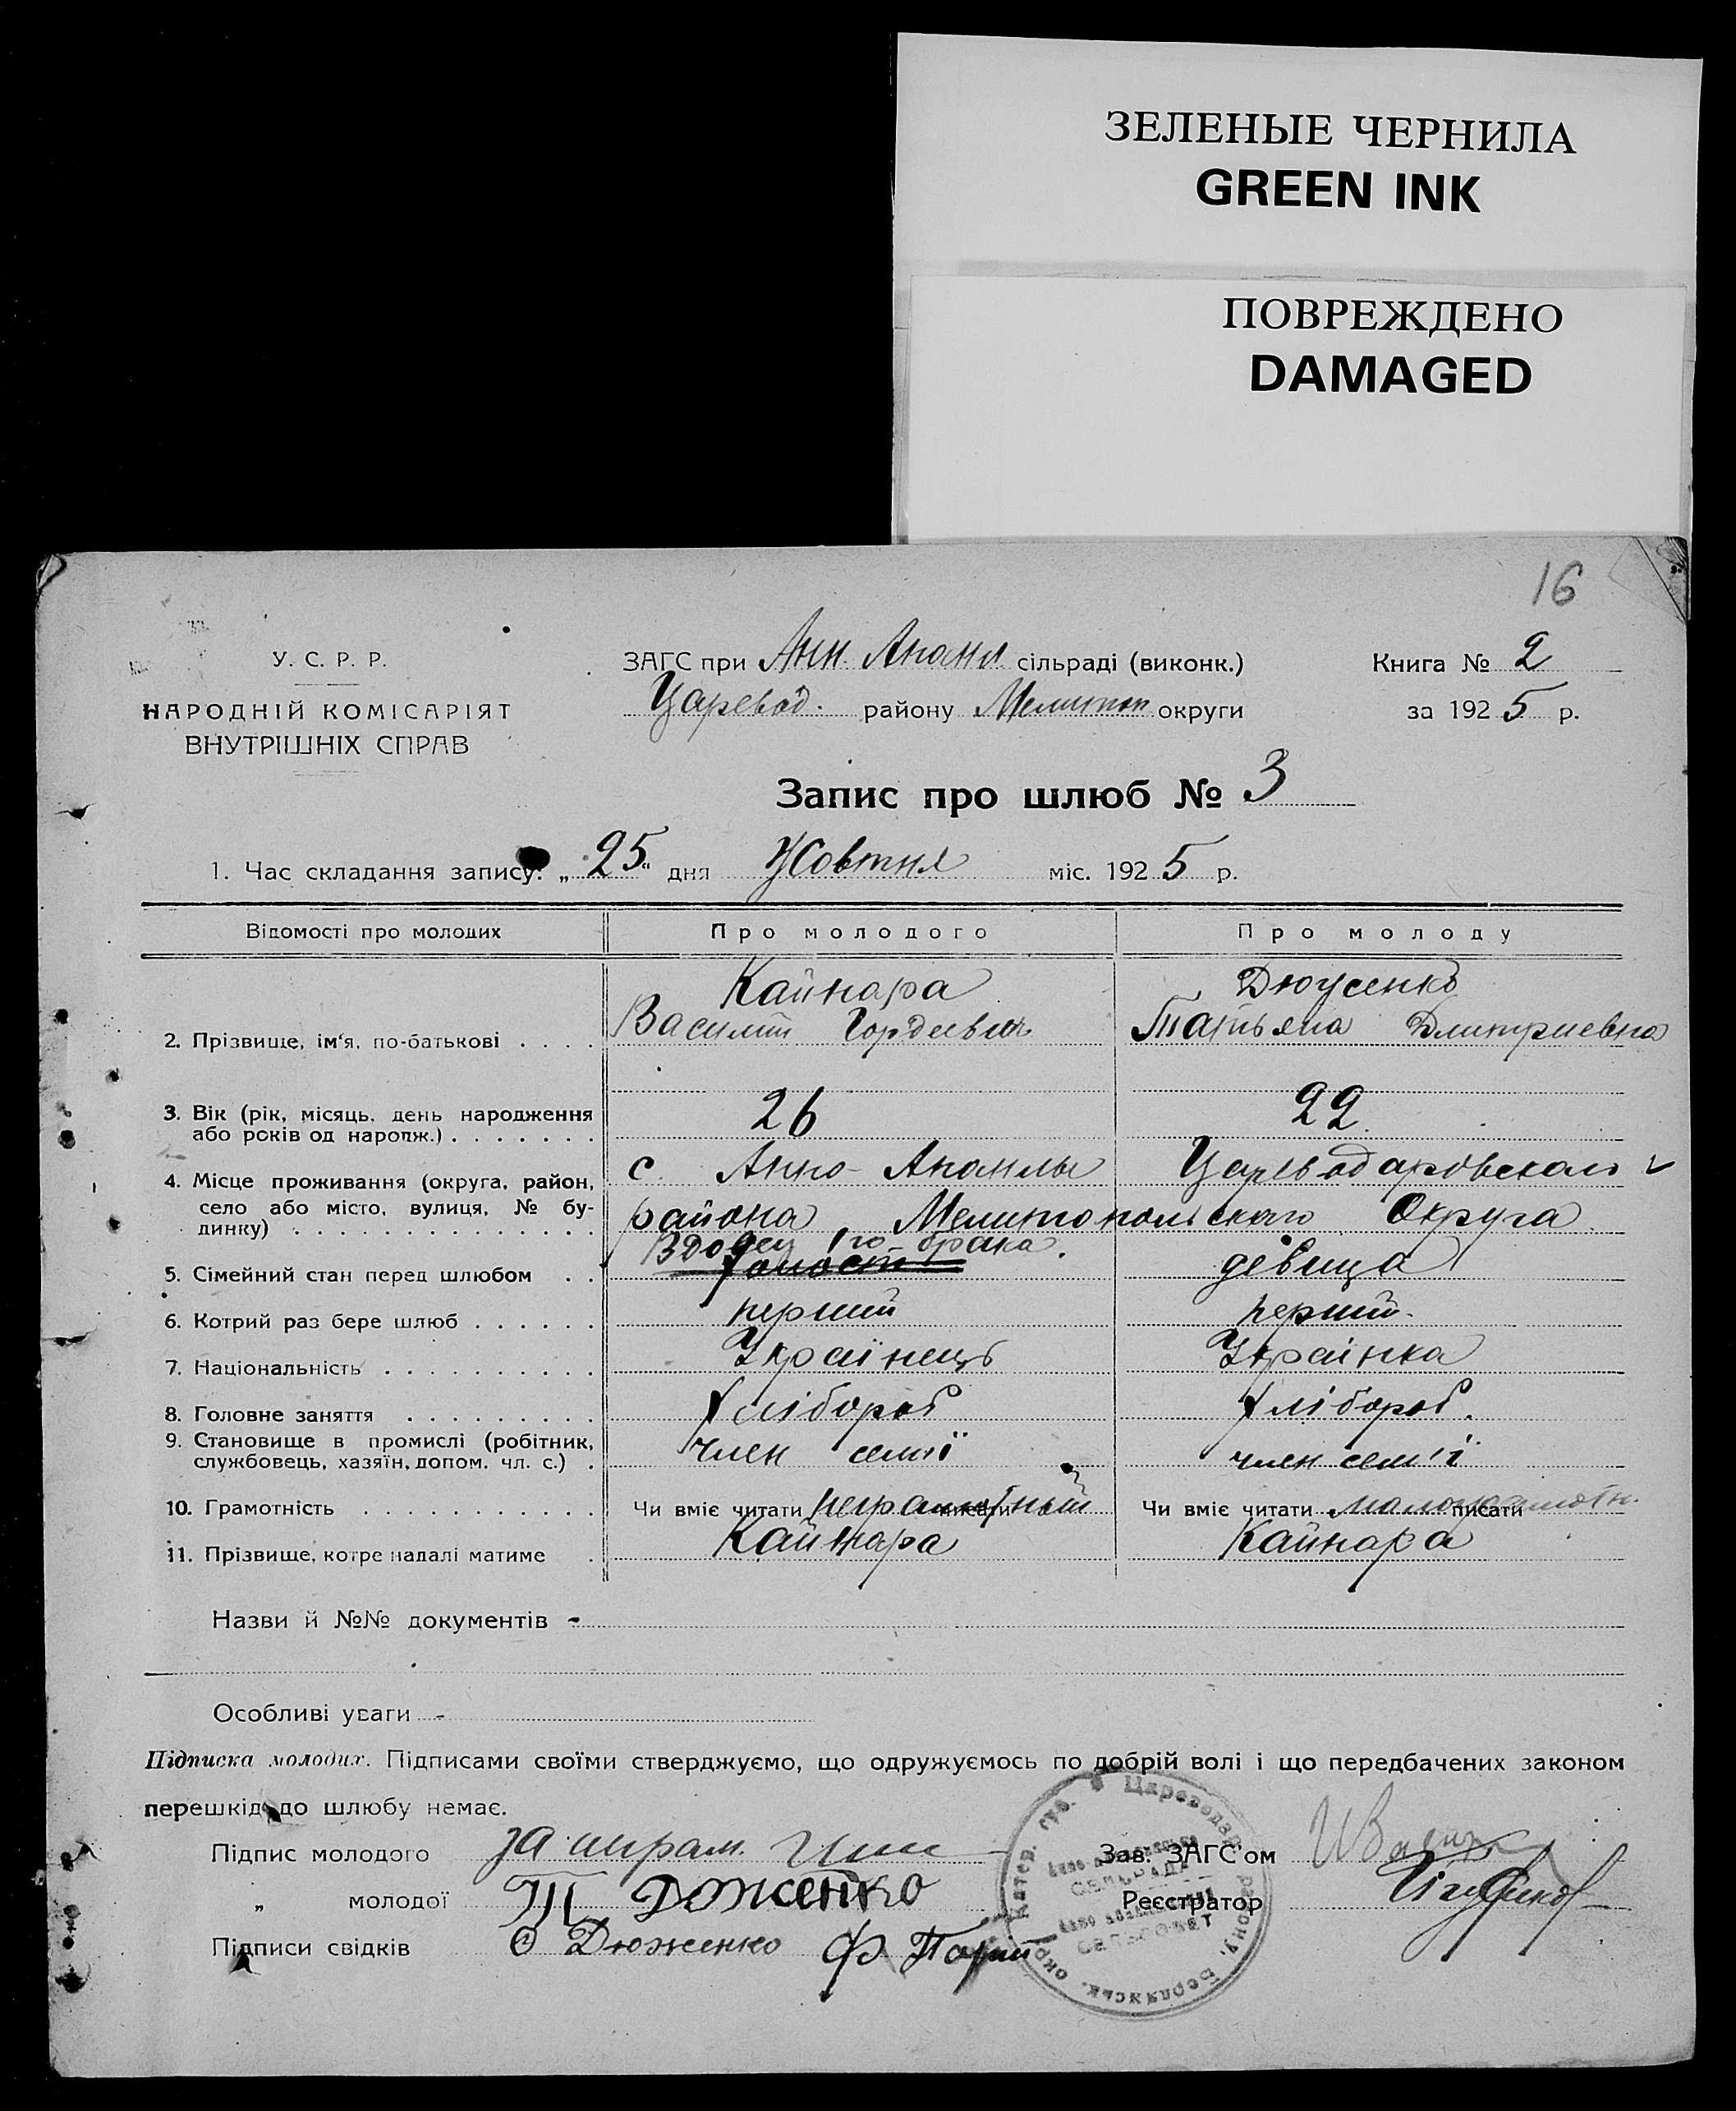 ЗЕЛЕНЫЕ ЧЕРНИЛА
GREEN INK
ПОВРЕЖДЕНО
DAMAGED
16
У. С. Р. Р.
НАРОДНІЙ КОМІСАРІЯТ
ВНУТРІШНІХ СПРАВ
ЗАГС при Анн. Анані сільраді (виконк.)
Царевод. району Мелитоп округи
Книга № 2
за 1925 р.
Запис про шлюб № 3
1. Час складання запису: „25“ дня Жовтня міс. 1925 р.
Відомості про молодих
Про молодого
Про молоду
2. Прізвище, ім‘я, по-батькові . . . .
Кайнара
Василий Гордеевич
Дюусенко
Татьяна Дмитриевна
3. Вік (рік, місяць, день народження
або років од народж.) . . . . . . .
26
22
4. Місце проживання (округа, район,
село або місто, вулиця, № бу-
динку) . . . . . . . . . . . . . .
с. Анно-Ананлы Цареводаровского
района, Мелитопольского Округа
5. Сімейний стан перед шлюбом . .
Вдовец 1го брака.
холост
девица
6. Котрий раз бере шлюб . . . . . .
перший
перший.
7. Національність . . . . . . . . . .
Українець
Українка
8. Головне заняття . . . . . . . . .
Хлібороб
Хлібороб.
9. Становище в промислі (робітник,
службовець, хазяїн, допом. чл. с.) .
член семії
член сем'ї
10. Грамотність . . . . . . . . . . .
Чи вміє читати неграмотный писати
Чи вміє читати малограмотн. писати
11. Прізвище, котре надалі матиме .
Кайнара
Кайнара
Назви й №№ документів -
Особливі уваги -
Підписка молодих. Підписами своїми стверджуємо, що одружуємось по добрій волі і що передбачених законом
перешкід до шлюбу немає.
Підпис молодого
за
Зав. ЗАГС'ом
„ молодої Т Доженко
Реєстратор
Підписи свідків О Дюженко Ф
Катер. губ. Царевода району, Бердянськ. окр.
СЕЛЬРАДА
СЕЛЬСОВЕТ